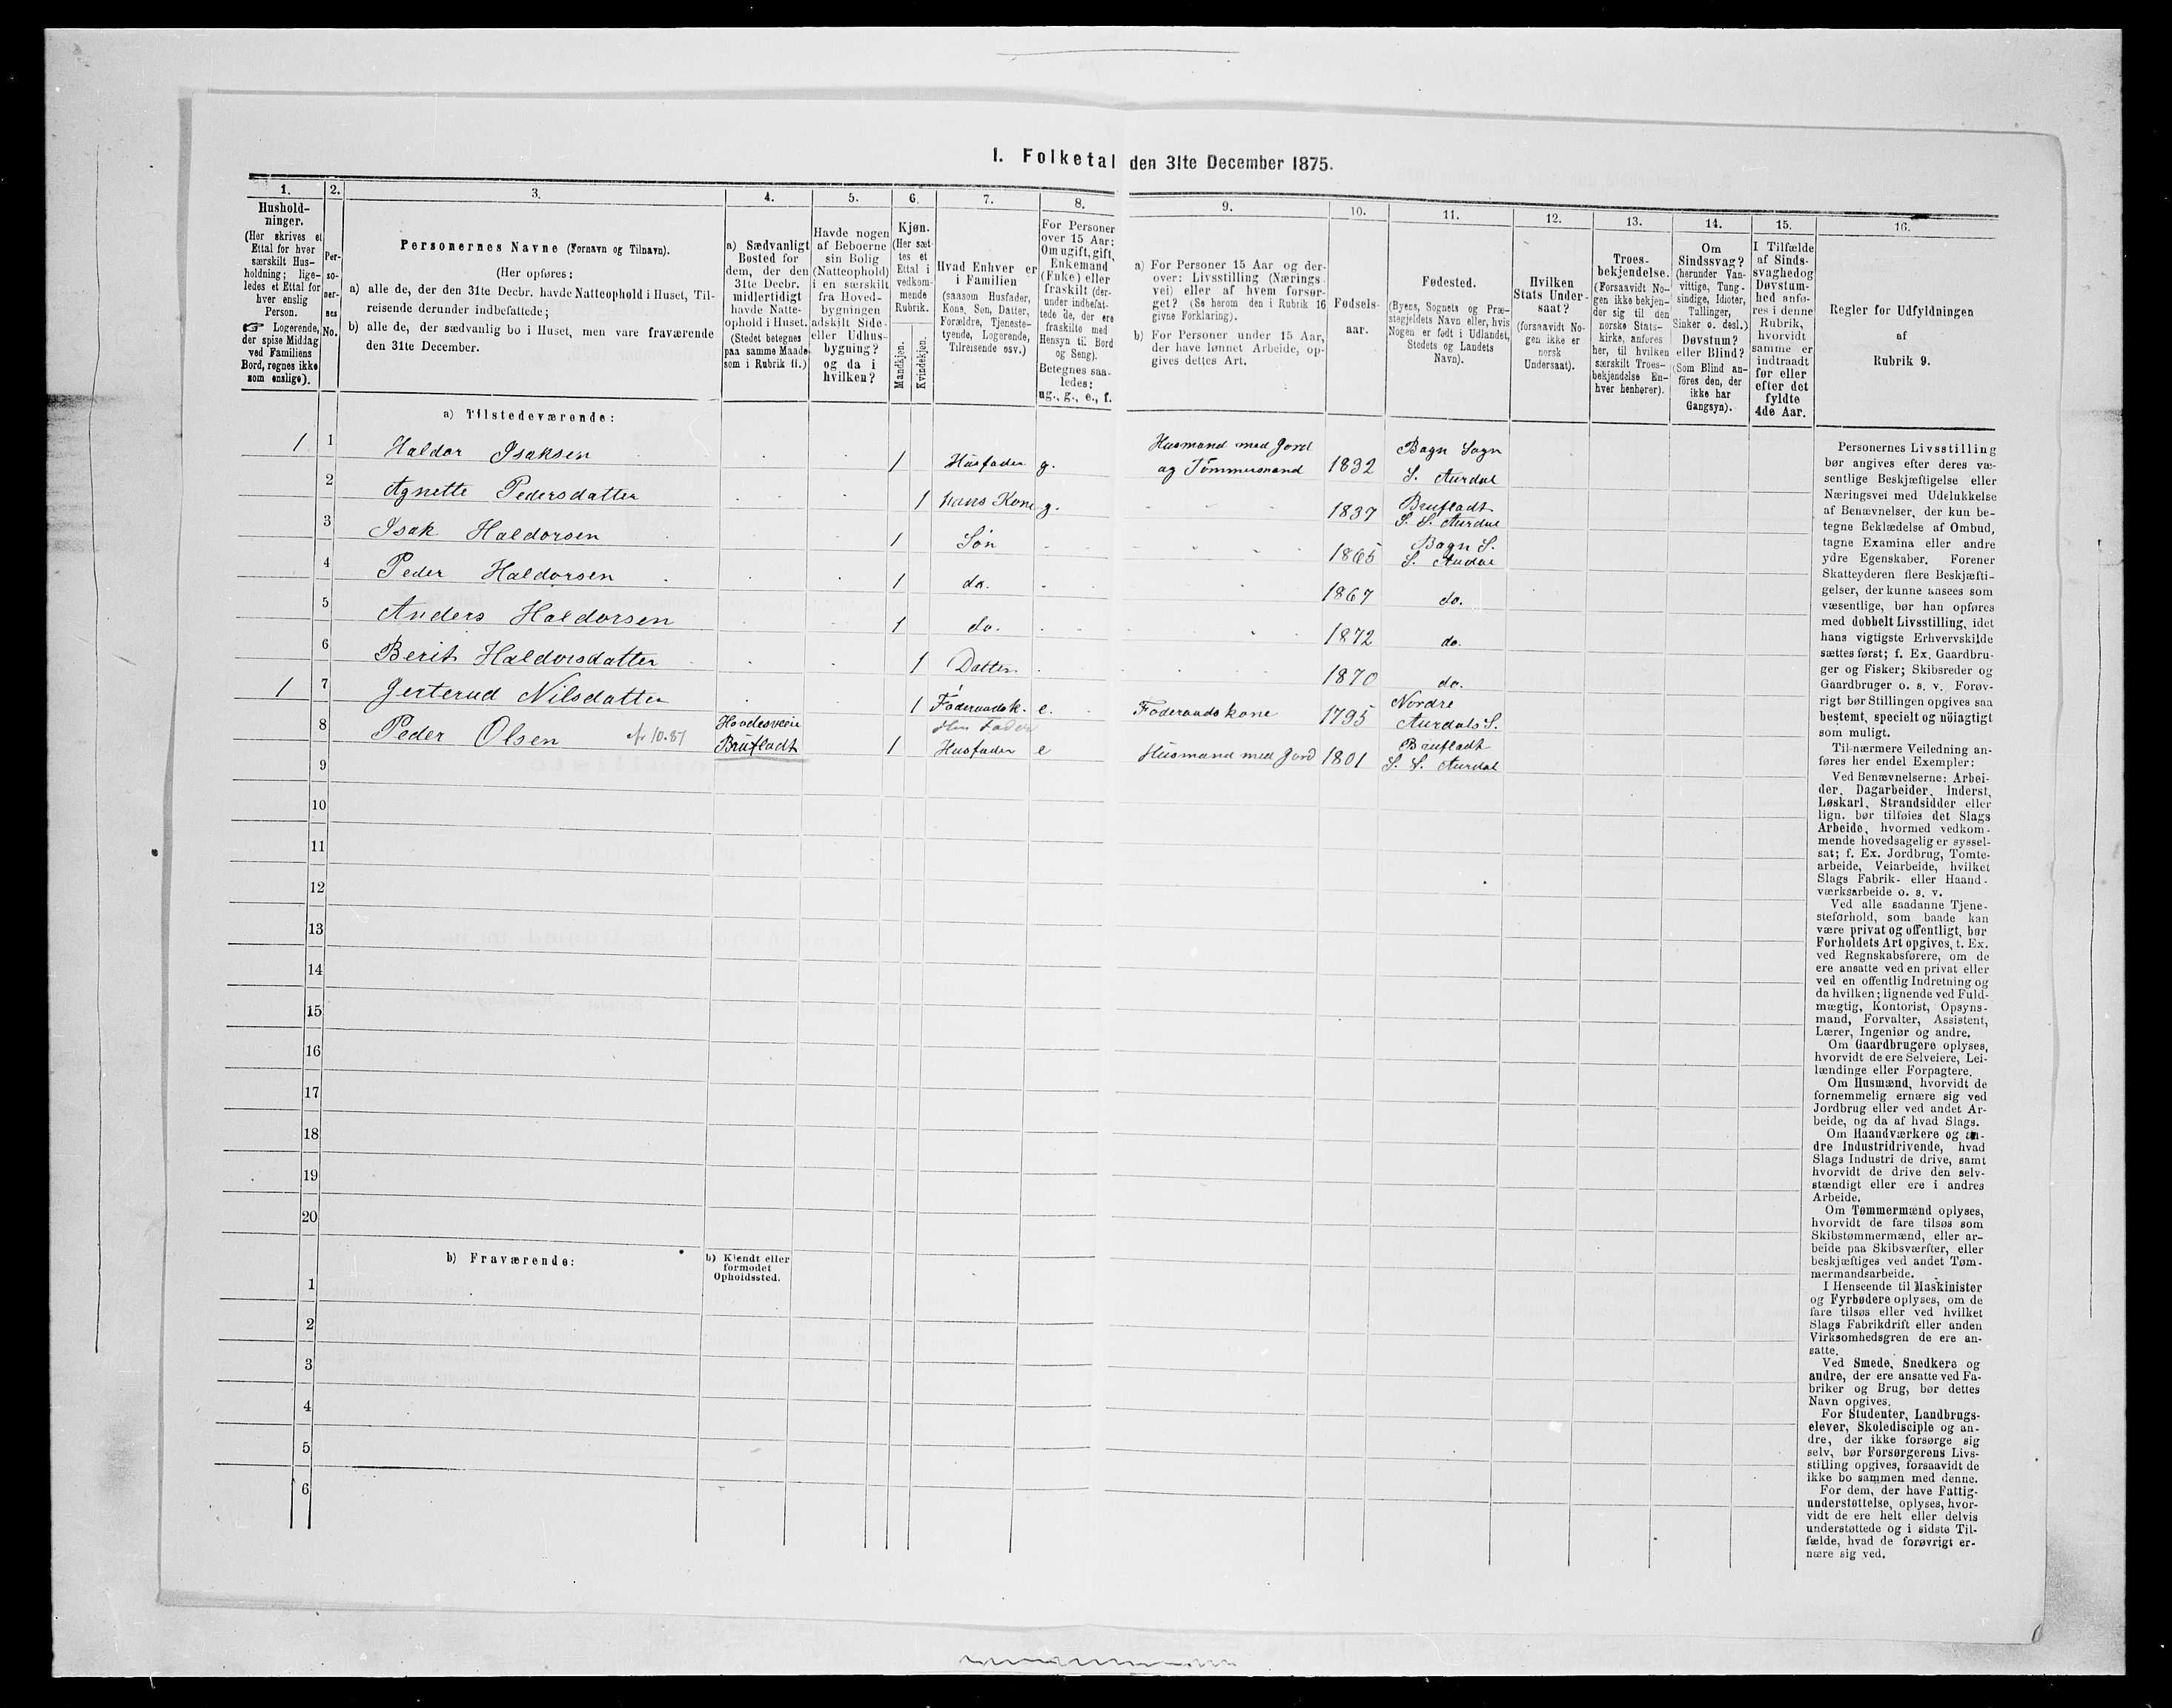 I. Folketal den 31te December 1875.
1.
Hushold-
ninger.
(Her skrives et
Ettal for hver
særskilt Hus-
holdning; lige-
ledes et Ettal for
hver enslig
Person.
☞ Logerende,
der spise Middag
ved Familiens
Bord, regnes ikke
som enslige).
2.
Per-
so-
ner-
nes
No.
3.
Personernes Navne (Fornavn og Tilnavn).
(Her opføres:
a) alle de, der den 31te Decbr. havde Natteophold i Huset, Til-
reisende derunder indbefattede;
b) alle de, der sædvanlig bo i Huset, men vare fraværende
den 31te December.
4.
a) Sædvanligt
Bosted for
dem, der den
31te Decbr.
midlertidigt
havde Natte-
ophold i Huset.
(Stedet betegnes
paa samme Maade
som i Rubrik 11.)
5.
Havde nogen
af Beboerne
sin Bolig
(Natteophold)
i en særskilt
fra Hoved-
bygningen
adskilt Side-
eller Udhus-
bygning?
og da i
hvilken?
6.
Kjøn.
(Her sæt-
tes et
Ettal i
vedkom-
mende
Rubrik.
Mandkjøn.
Kvindekjøn.
7.
Hvad Enhver er
i Familien
(saasom Husfader,
Kone, Søn, Datter,
Forældre, Tjeneste-
tyende, Logerende,
Tilreisende osv.)
8.
For Personer
over 15 Aar:
Om ugift, gift,
Enkemand
(Enke) eller
fraskilt (der-
under indbefat-
tede de, der ere
fraskilte med
Hensyn til Bord
og Seng).
Betegnes saa-
ledes:
ug., g., e., f.
9.
a) For Personer 15 Aar og der-
over: Livsstilling (Nærings-
vei) eller af hvem forsør-
get? (Se herom den i Rubrik 16
givne Forklaring).
b) For Personer under 15 Aar,
der have lønnet Arbeide, op-
gives dettes Art.
10.
Fødsels-
aar.
11.
Fødested.
(Byens, Sognets og Præ-
stegjeldets Navn eller, hvis
Nogen er født i Udlandet,
Stedets og Landets
Navn).
12.
Hvilken
Stats Under-
saat?
(forsaavidt No-
gen ikke er
norsk
Undersaat).
13.
Troes-
bekjendelse.
(Forsaavidt No-
gen ikke bekjen-
der sig til den
norske Stats-
kirke, anføres
her, til hvilken
særskilt Troes-
bekjendelse En-
hver henhører).
14.
Om
Sindssvag?
(herunder Van-
vittige, Tung-
sindige, Idioter,
Tullinger,
Sinker o. desl.)
Døvstum?
eller Blind?
(Som Blind an-
føres den, der
ikke har
Gangsyn).
15.
I Tilfælde
af Sinds-
svaghed og
Døvstum-
hed anfø-
res i denne
Rubrik,
hvorvidt
samme er
indtraadt
før eller
efter det
fyldte
4de Aar.
16.
Regler for Udfyldningen
af
Rubrik 9.
a) Tilstedeværende:
1 1 Haldor Isaksen 1 Husfader g. Husmand med Jord og Tømmermand 1832 Bagn Sogn S. Aurdal
2 Agnette Pedersdatter 1 hans Kone g. 1837 Brufladt S. S. Aurdal
3 Isak Haldorsen 1 Søn 1865 Bagn S. S. Aurdal
4 Peder Haldorsen 1 do. 1867 do.
5 Anders Haldorsen 1 do. 1872 do.
6 Berit Haldorsdatter 1 Datter 1870 do.
1 7 Gerterud Nilsdatter 1 Føderaadsk. e. Føderaadskone 1795 Nordre Aurdals S.
8 Peder Olsen 10.87 Brufladt 1 Fader Husfader e Husmand med Jord 1801 Brufladt S. S. Aurdal
9
10
11
12
13
14
15
16
17
18
19
20
b) Fraværende:
b) Kjendt eller
formodet
Opholdssted.
1
2
3
4
5
6
Personernes Livsstilling
bør angives efter deres væ-
sentlige Beskjæftigelse eller
Næringsvei med Udelukkelse
af Benævnelser, der kun be-
tegne Beklædelse af Ombud,
tagne Examina eller andre
ydre Egenskaber. Forener
Skatteyderen flere Beskjæfti-
gelser, der kunne ansees som
væsentlige, bør han opføres
med dobbelt Livsstilling, idet
hans vigtigste Erhvervskilde
sættes først; f. Ex. Gaardbru-
ger og Fisker; Skibsreder og
Gaardbruger o. s. v. Forøv-
rigt bør Stillingen opgives saa
bestemt, specielt og nøiagtigt
som muligt.
Til nærmere Veiledning an-
føres her endel Exempler:
Ved Benævnelserne: Arbei-
der, Dagarbeider, Inderst,
Løskarl, Strandsidder eller
lign. bør tilføies det Slags
Arbeide, hvormed vedkom-
mende hovedsagelig er syssel-
sat; f. Ex. Jordbrug, Tomte-
arbeide, Veiarbeide, hvilket
Slags Fabrik- eller Haand-
værksarbeide o. s. v.
Ved alle saadanne Tjene-
steforhold, som baade kan
være privat og offentligt, bør
Forholdets Art opgives, t. Ex.
ved Regnskabsførere, om de
ere ansatte ved en privat eller
ved en offentlig Indretning og
da hvilken; lignende ved Fuld-
mægtig, Kontorist, Opsyns-
mand, Forvalter, Assistent,
Lærer, Ingeniør og andre.
Om Gaardbrugere oplyses,
hvorvidt de ere Selveiere, Lei-
lændinge eller Forpagtere.
Om Husmænd, hvorvidt de
fornemmelig ernære sig ved
Jordbrug eller ved andet Ar-
beide, og da af hvad Slags.
Om Haandværkere og an-
dre Industridrivende, hvad
Slags Industri de drive, samt
hvorvidt de drive den selv-
stændigt eller ere i andres
Arbeide.
Om Tømmermænd oplyses,
hvorvidt de fare tilsøs som
Skibstømmermænd, eller ar-
beide paa Skibsværfter, eller
beskjæftiges ved andet Tøm-
mermandsarbeide.
I Henseende til Maskinister
og Fyrbødere oplyses, om de
fare tilsøs eller ved hvilket
Slags Fabrikdrift eller anden
Virksomhedsgren de ere an-
satte.
Ved Smede, Snedkere og
andre, der ere ansatte ved Fa-
briker og Brug, bør dettes
Navn opgives.
For Studenter, Landbrugs-
elever, Skoledisciple og an-
dre, der ikke forsørge sig
selv, bør Forsørgerens Livs-
stilling opgives, forsaavidt de
ikke bo sammen med denne.
For dem, der have Fattig-
understøttelse, oplyses, hvor-
vidt de ere helt eller delvis
understøttede og i sidste Til-
fælde, hvad de forøvrigt er-
nære sig ved.